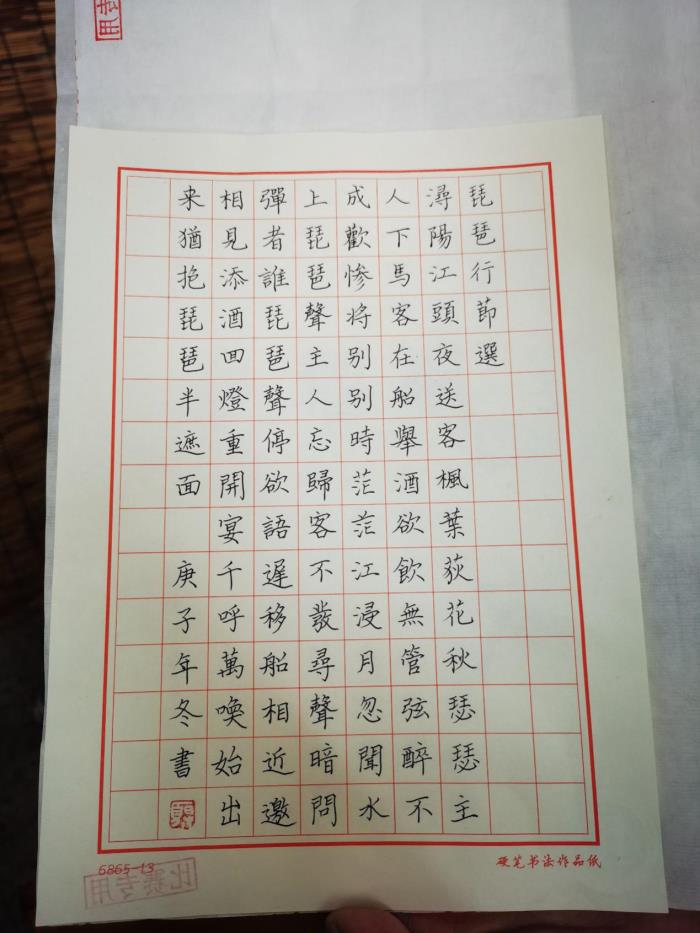 琵琶行節選
潯陽江頭夜送客楓葉荻花秋瑟瑟主
人下馬客在船舉酒欲飲無管弦醉不
成歡惨将别别時茫茫江浸月忽聞水
上琵琶聲主人忘歸客不發尋聲暗問
彈者誰琵琶聲停欲語遲移船相近邀
相見添酒回燈重開宴千呼萬喚始出
来猶抱琵琶半遮面 庚子年冬書
6865-13
硬笔书法作品纸
比赛专用